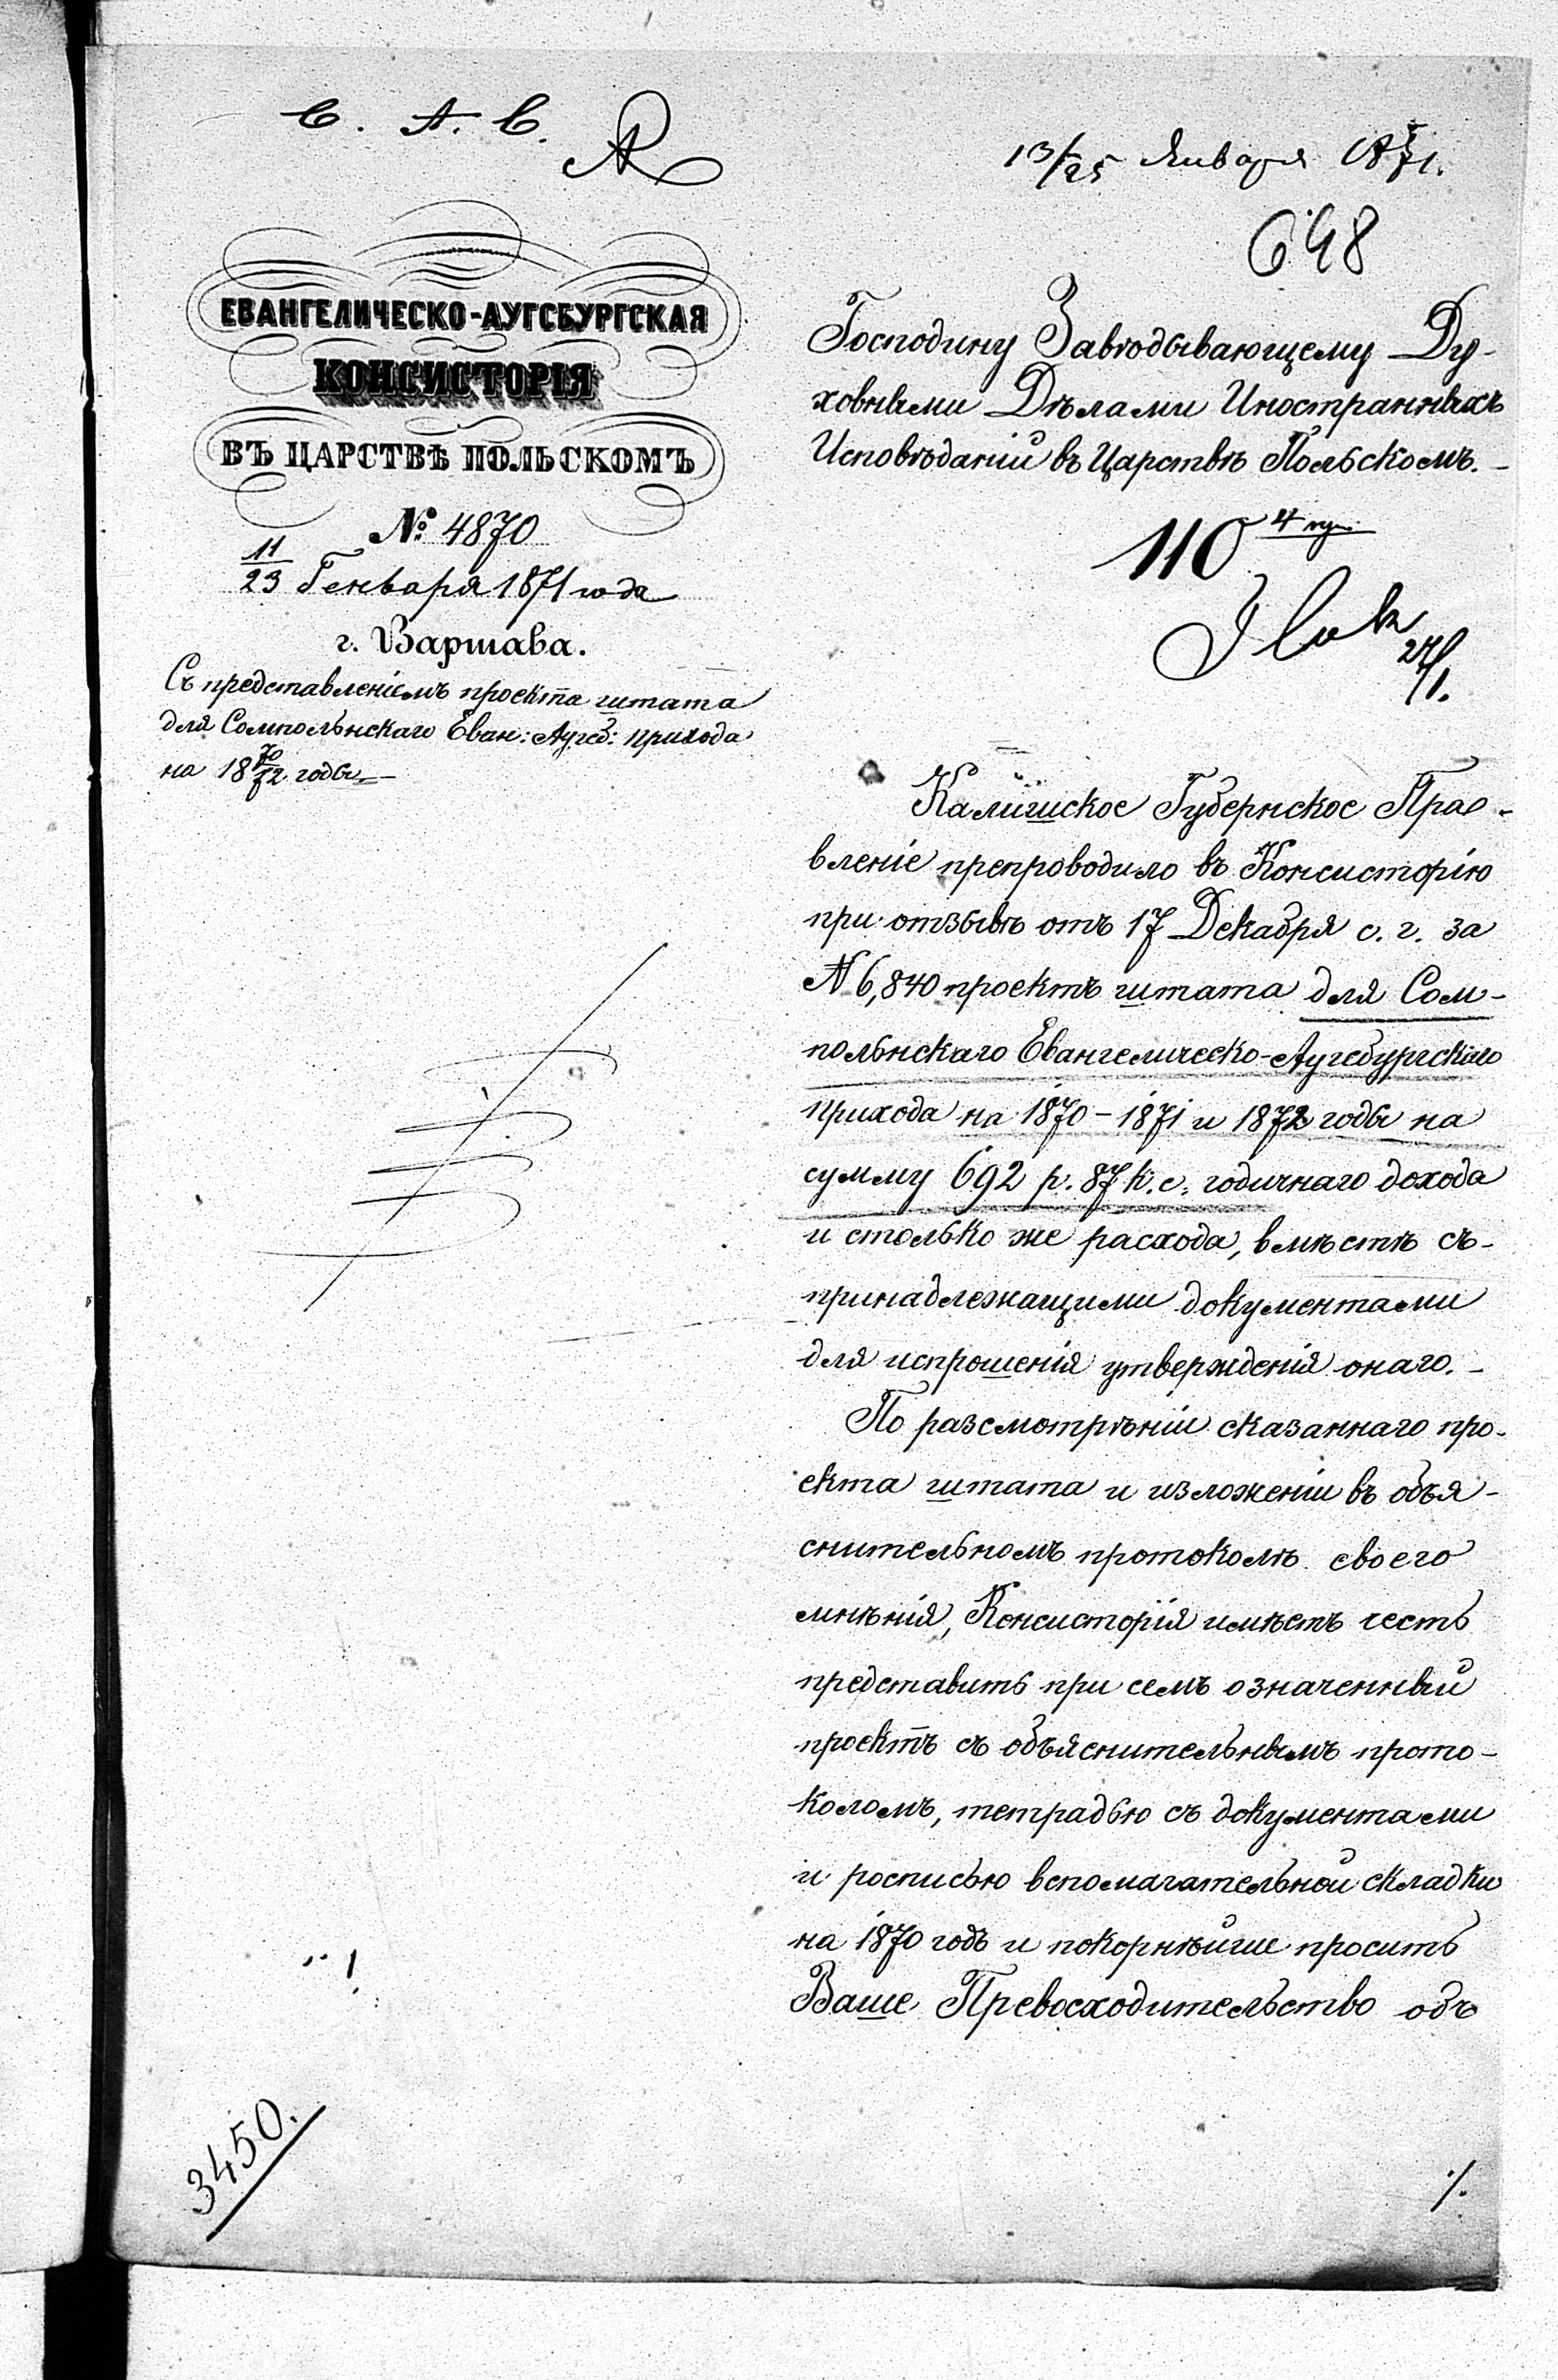 С. А. С.
13/25 Января 1871.
648
ЕВАНГЕЛИЧЕСКО-АУГСБУРГСКАЯ
КОНСИСТОРІЯ
ВЪ ЦАРСТВѢ ПОЛЬСКОМЪ
№ 4870
11/23 Генваря 1871 года
г. Варшава.
Съ представленіемъ проекта штата
для Сомпольнскаго Еван: Аугсб: прихода
на 1870/72 годы
Господину Завѣдывающему Ду-
ховными Дѣлами Иностранныхъ
Исповѣданій въ Царствѣ Польскомъ.
110
24/1.
Калишское Губернское Прав-
вленіе препроводило въ Консисторію
при отзывѣ отъ 17 Декабря с. г. за
№ 6,840 проектъ штата для Сом-
польнскаго Евангелическо-Аугсбургскаго
прихода на 1870 – 1871 и 1872 годы на
сумму 692 р. 87 к. с. годичнаго дохода
и столько же расхода, вмѣстѣ съ
принадлежащими документами
для испрошенія утвержденія онаго. –
По разсмотрѣніи сказаннаго про-
екта штата и изложеніи въ объя-
снительномъ протоколѣ своего
мнѣнія, Консисторія имѣетъ честь
представить при семъ означенный
проектъ съ объяснительнымъ прото-
коломъ, тетрадью съ документами
и росписью вспомагательной складки
на 1870 годъ и покорнѣйше просить
Ваше Превосходительство объ
3450.
./.